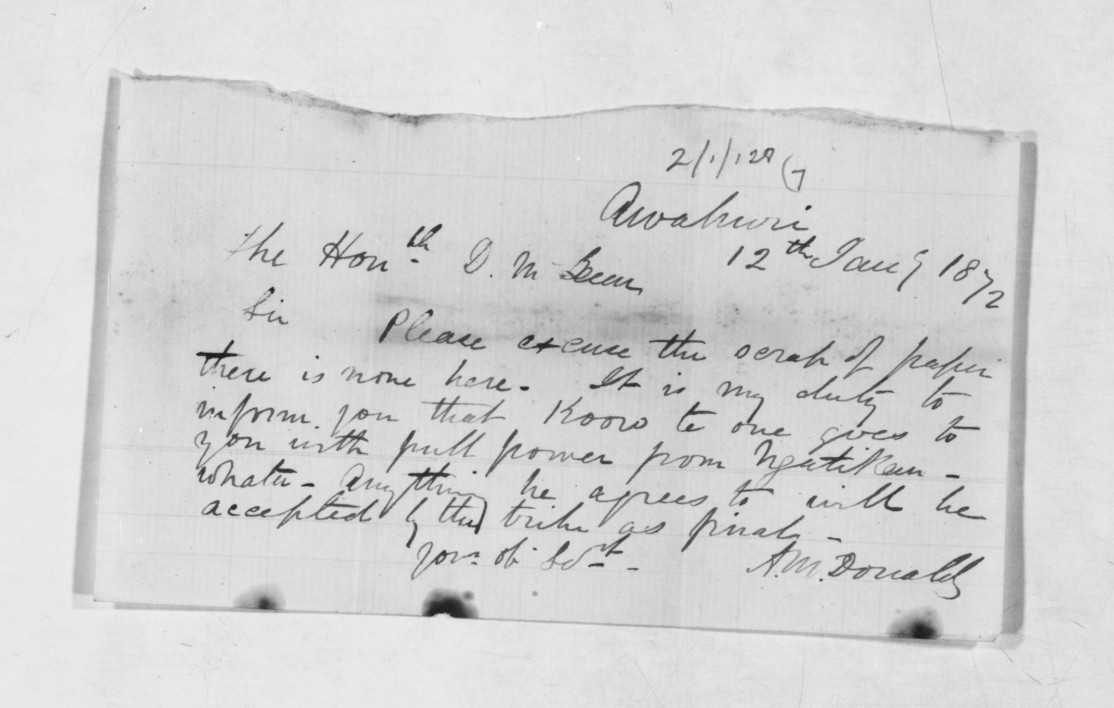 2/1/128
Awahuri
12th Jany 1872
The Honble D. McLean
Sir
Please excuse the scrap of paper
there is none here. It is my duty to
inform you that Kooro te one goes to
you with full power from Ngatikau-
whata - Anything he agrees to will be
accepted by the tribe as final -
Your ob Svt -
A. McDonald